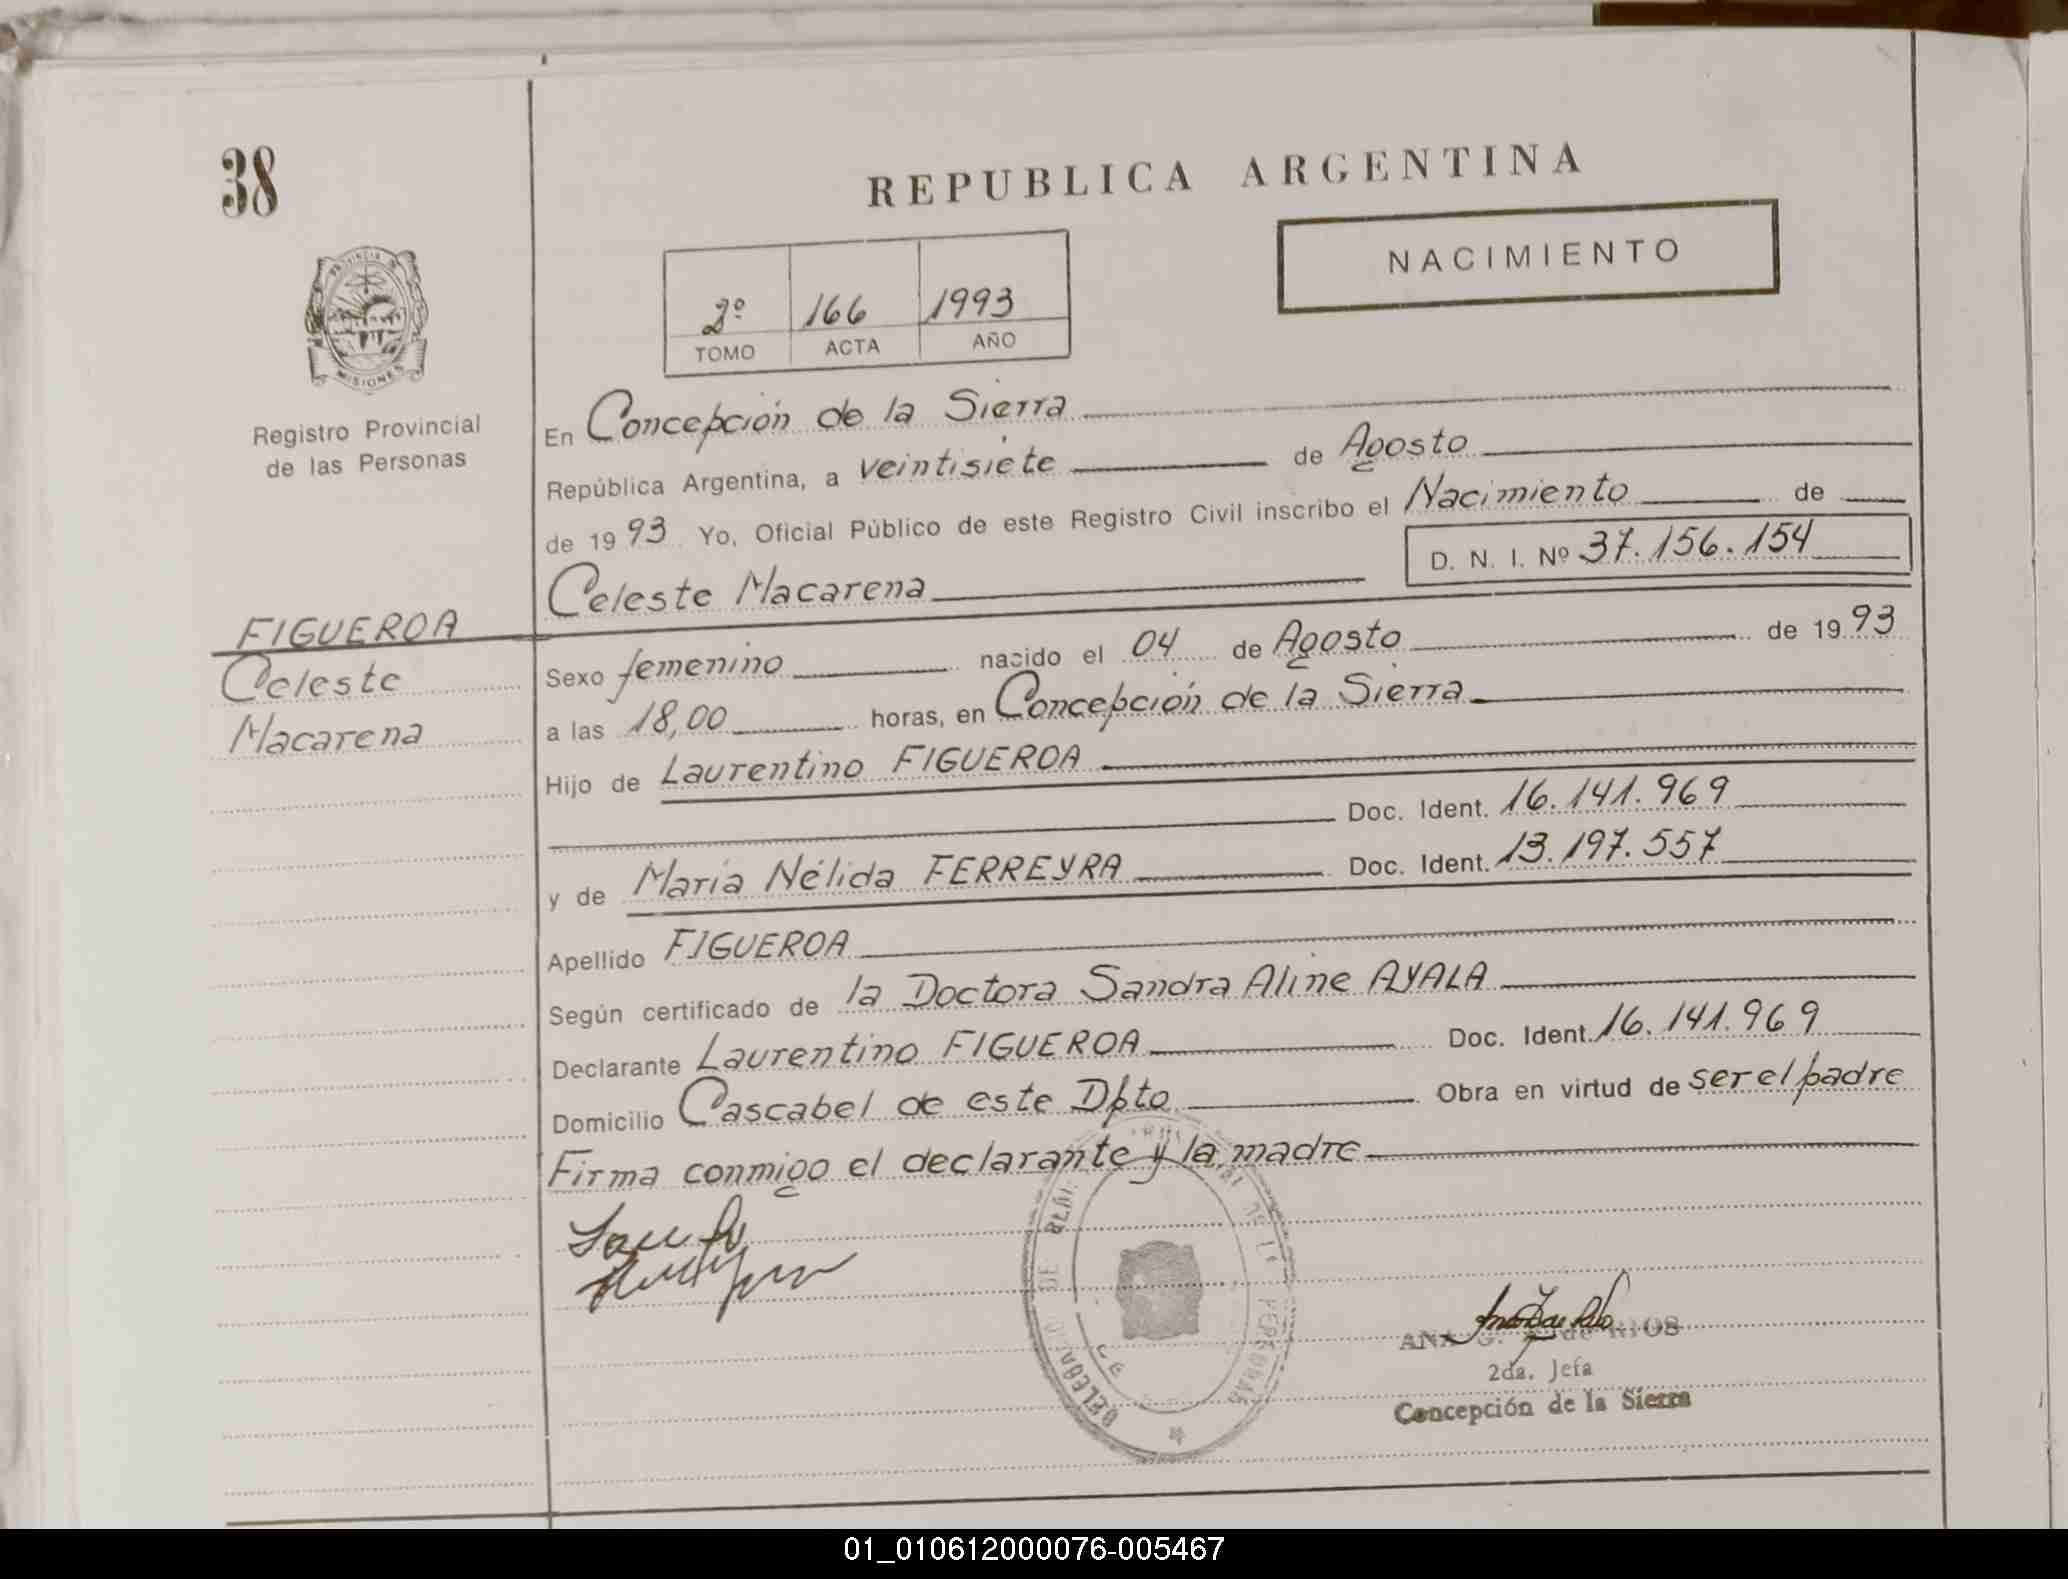 38
REPUBLICA ARGENTINA
NACIMIENTO
2º 166 1993
TOMO ACTA AÑO
PROVINCIA DE MISIONES
Registro Provincial
de las Personas
FIGUEROA
Celeste
Macarena
En Concepción de la Sierra
República Argentina, a veintisiete de Agosto
de 1993 Yo, Oficial Público de este Registro Civil inscribo el Nacimiento de
Celeste Macarena D. N. I. Nº 37.156.154
Sexo femenino nacido el 04 de Agosto de 1993
a las 18,00 horas, en Concepción de la Sierra
Hijo de Laurentino FIGUEROA
Doc. Ident. 16.141.969
y de María Nélida FERREYRA Doc. Ident. 13.197.557
Apellido FIGUEROA
Según certificado de la Doctora Sandra Aline AYALA
Declarante Laurentino FIGUEROA Doc. Ident. 16.141.969
Domicilio Cascabel de este Dpto Obra en virtud de ser el padre
Firma conmigo el declarante y la madre
ANA G. de RIOS
2da. Jefa
Concepción de la Sierra
01_010612000076-005467